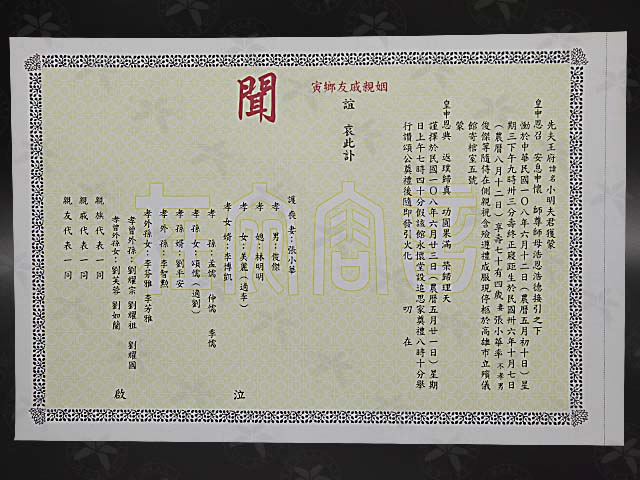 先夫王府諱名小明夫君獲蒙
皇申恩召　安息申懷　師尊師母浩恩浩德接引之下
慟於中華民國一〇八年六月十二日（農曆五月初十日）星
期三下午九時卅三分壽終正寢距生於民國卅六年十月七日
（農曆八月十二日）享壽七十有四歲妻張小華率不孝男
俊傑等隨侍在側親視含殮遵禮成服現停柩於高雄市立殯儀
館寄棺室五號
蒙
皇申恩典　返璞歸真　功圓果滿　榮歸理天
謹擇於民國一〇八年六月廿三日（農曆五月廿一日）星期
日上午七時四十分假該館永懷堂設追思家奠禮八時十分舉
行讚頌公奠禮後隨即發引火化　叨　在
姻親戚友鄉寅
誼　哀此訃
聞
護喪妻：張小華
孝男：俊傑
孝媳：林明明
孝女：美麗（適李）
孝女婿：李博凱
孝孫：孟儒　仲儒　季儒
孝孫女：頌儒（適劉）
孝孫婿：劉平安
孝外孫：李智勲
孝外孫女：李芬雅　李芳雅
孝曾外孫：劉耀宗　劉耀祖　劉耀國
孝曾外孫女：劉芙蓉　劉如蘭
親族代表一同
親戚代表一同
親友代表一同
泣　啟